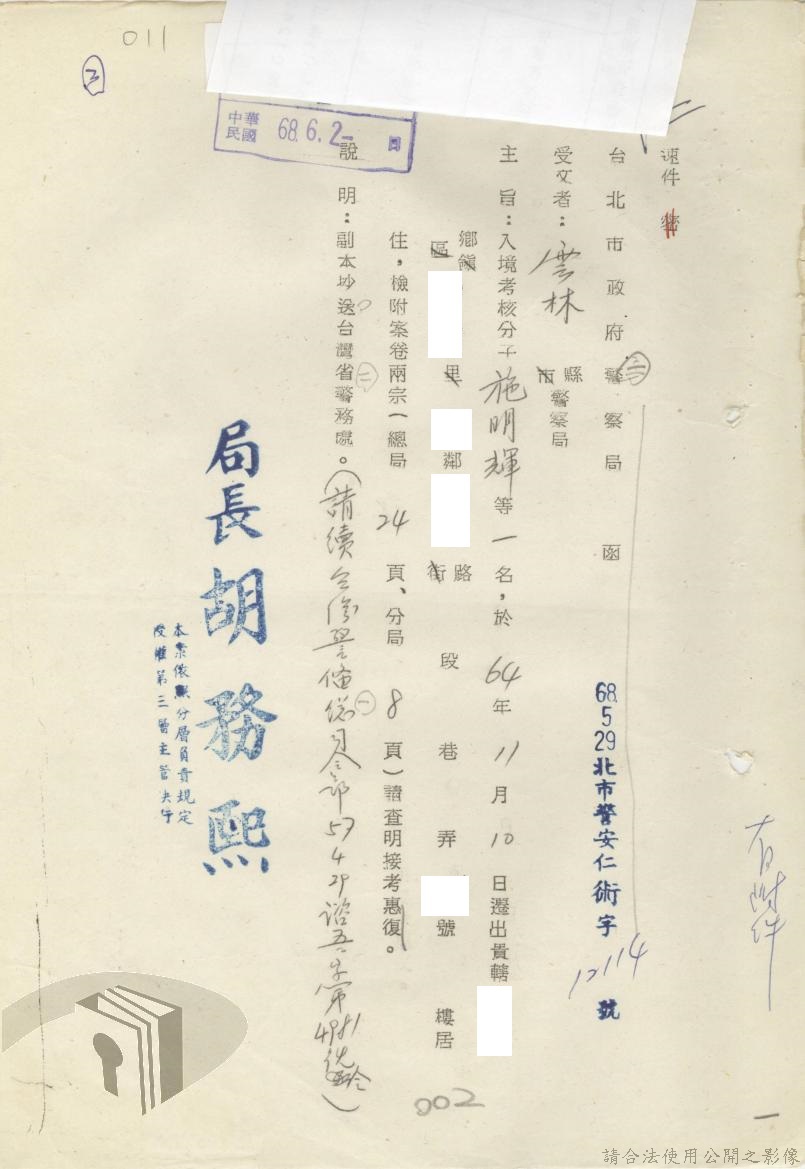 011
3
中華民國 68.6.2 日
速件
台北市政府警察局 函
68 5 29 北市警安仁術字 12114 號
受文者：雲林 縣市 警察局
主 旨：入境考核分子 施明輝 等一名，於 64 年 11 月 10 日遷出貴轄
鄉鎮區 里 鄰 路街 段 巷 弄 號 樓居
住，檢附案卷兩宗（總局 24 頁、分局 8 頁）請查明接考惠復。
說 明：副本抄送台灣省警務處。（請續 台灣警備總司令部 57 4 29 諮吾字第 4981
局長 胡務熙
本案依照分層負責規定
授權第三層主管決行
有附件
002
一
請合法使用公開之影像